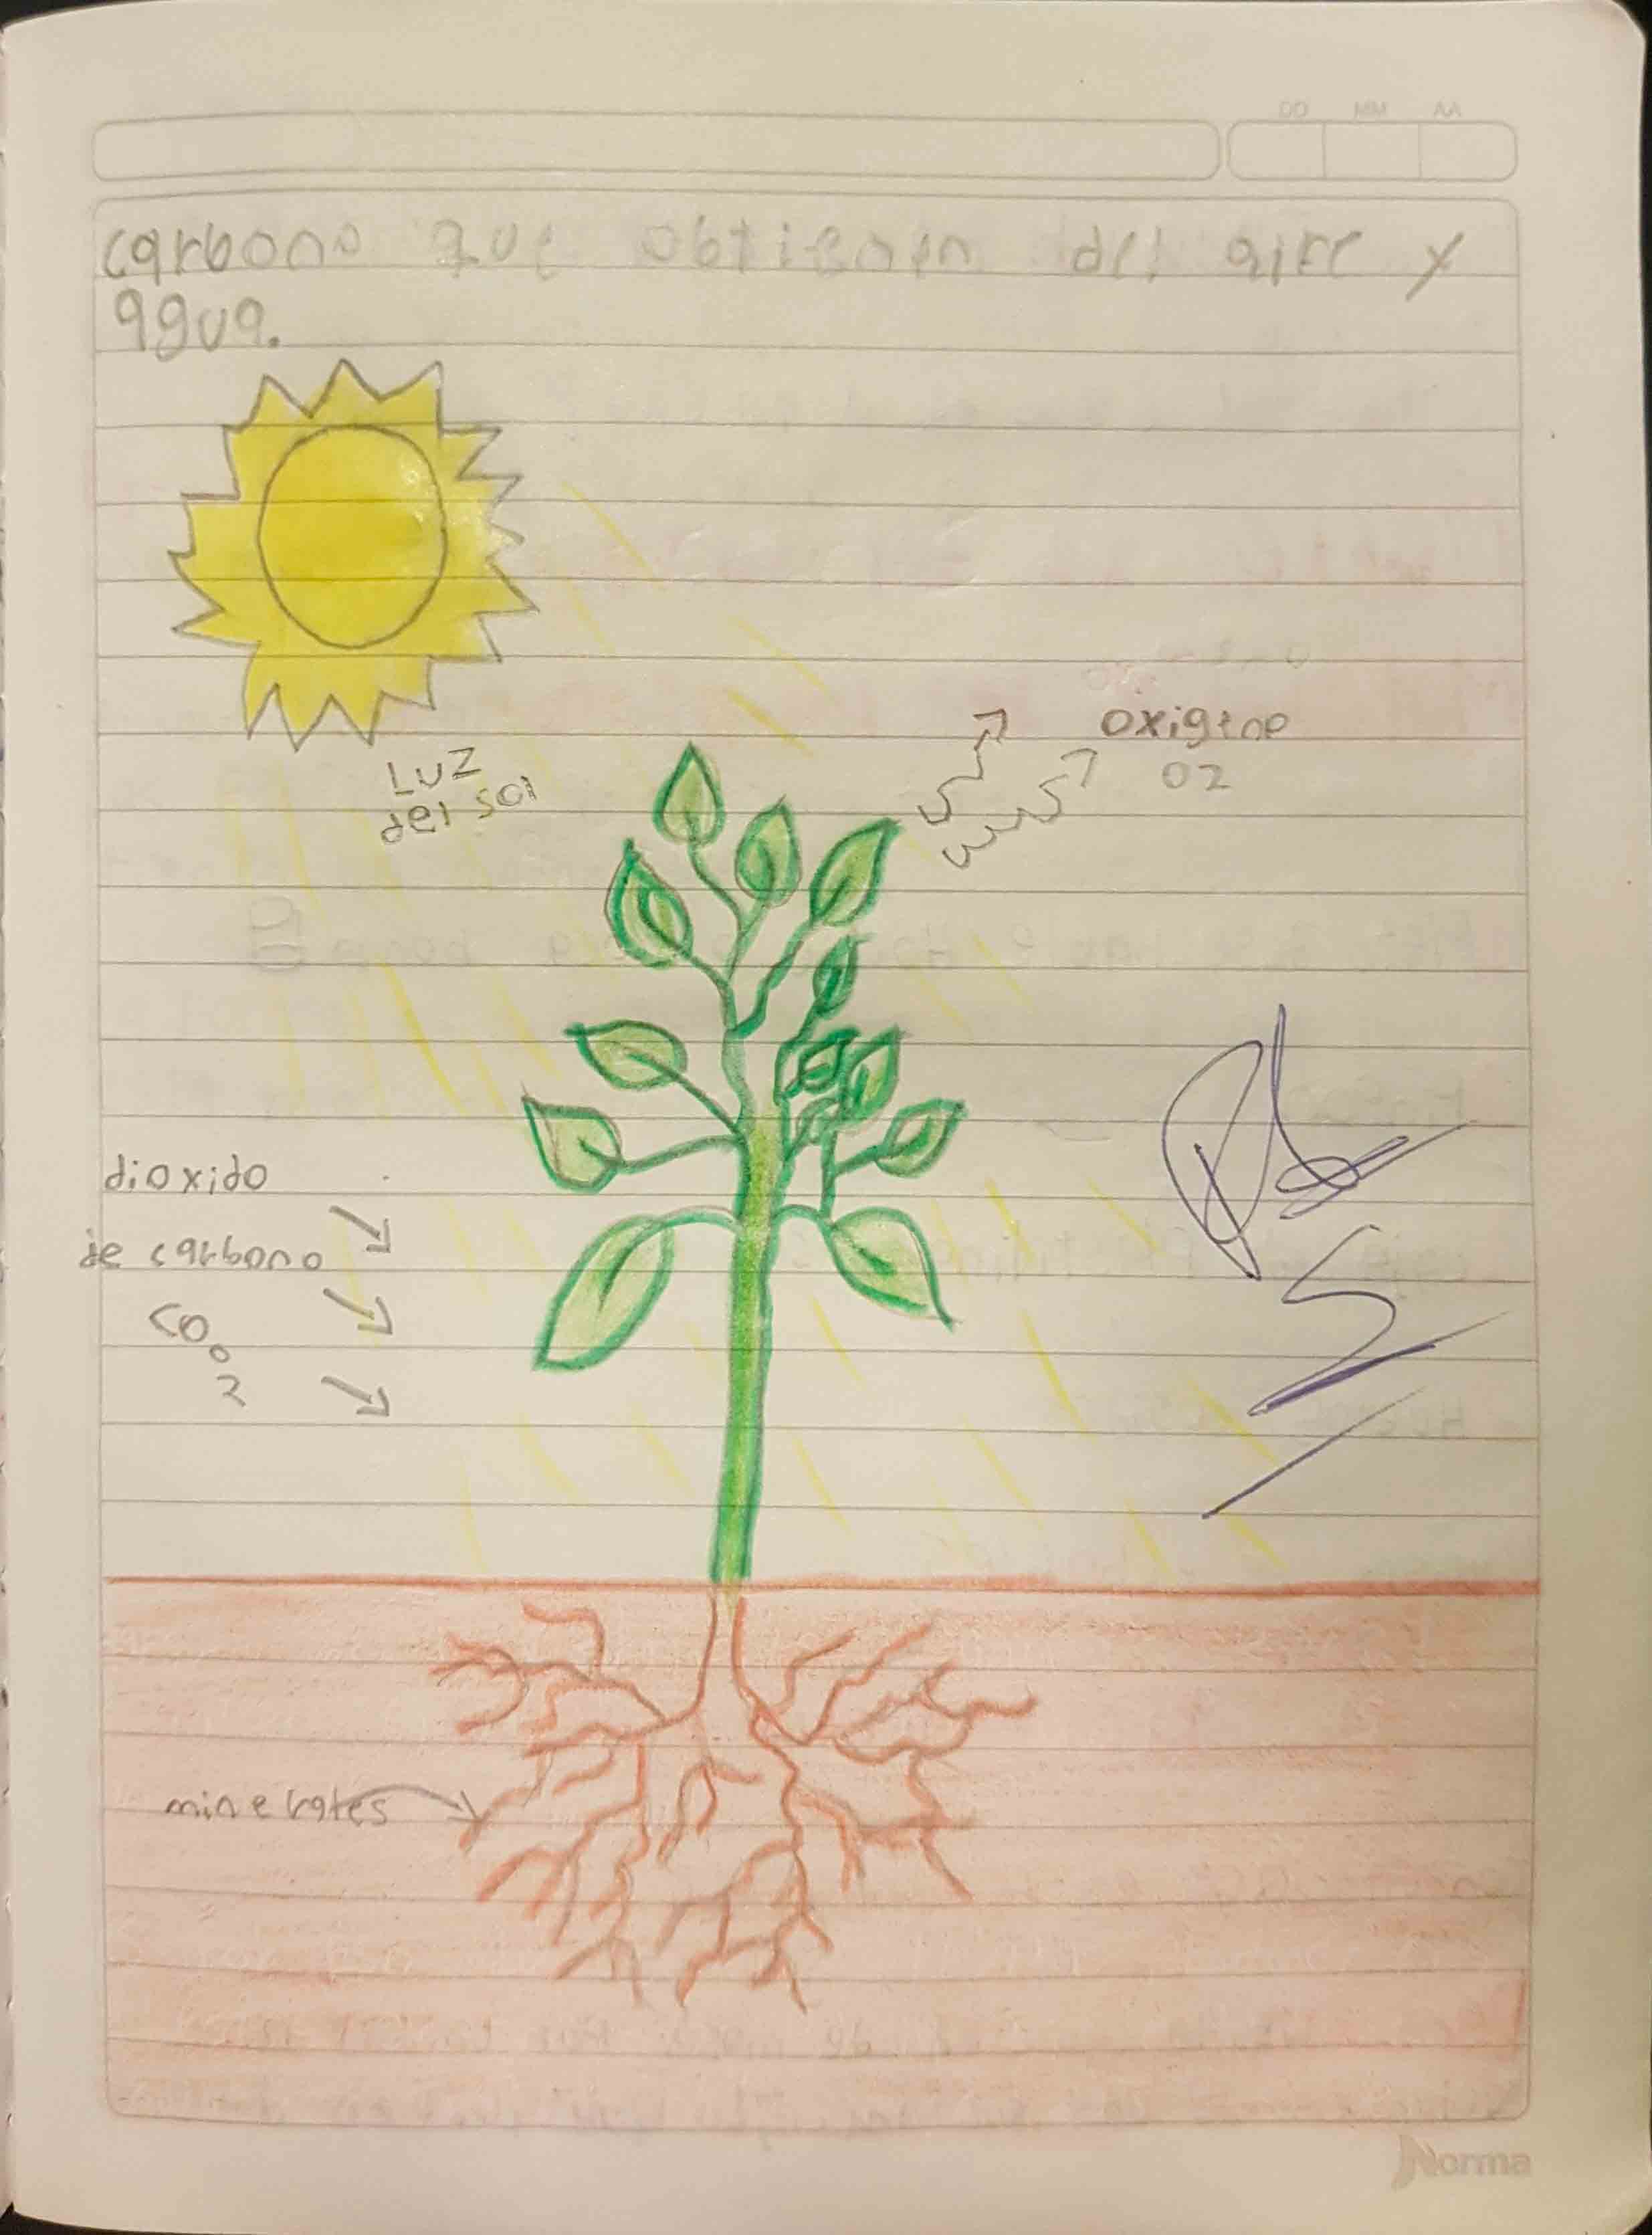 DD MM AA
carbono que obtienen del aire y
agua.
Luz
del sol
oxigeno
O2
dioxido
de carbono
CO
2
minerales
Norma